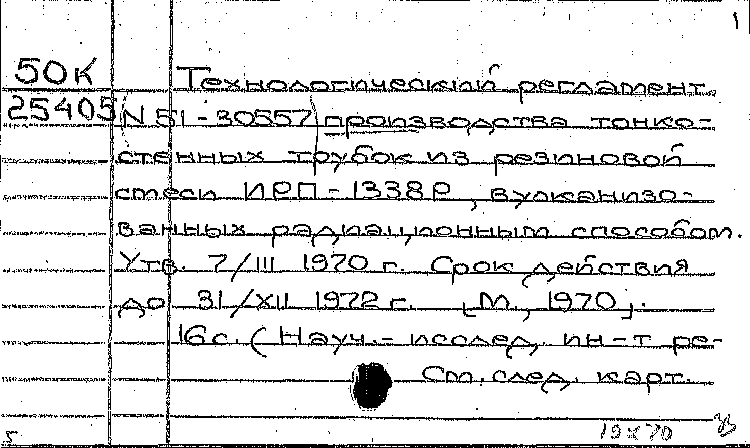 1
50К
25405
Технологический регламент
(N 51-30557) производства тонко-
стенных трубок из резиновой
смеси ИРП-1338Р, вулканизо-
ванных радиационным способом.
Утв. 7/III 1970 г. Срок действия
до 31/XII 1972 г. [М., 1970].
16с. (Науч.-исслед. ин-т ре-
См. след. карт.
5
19 X 70